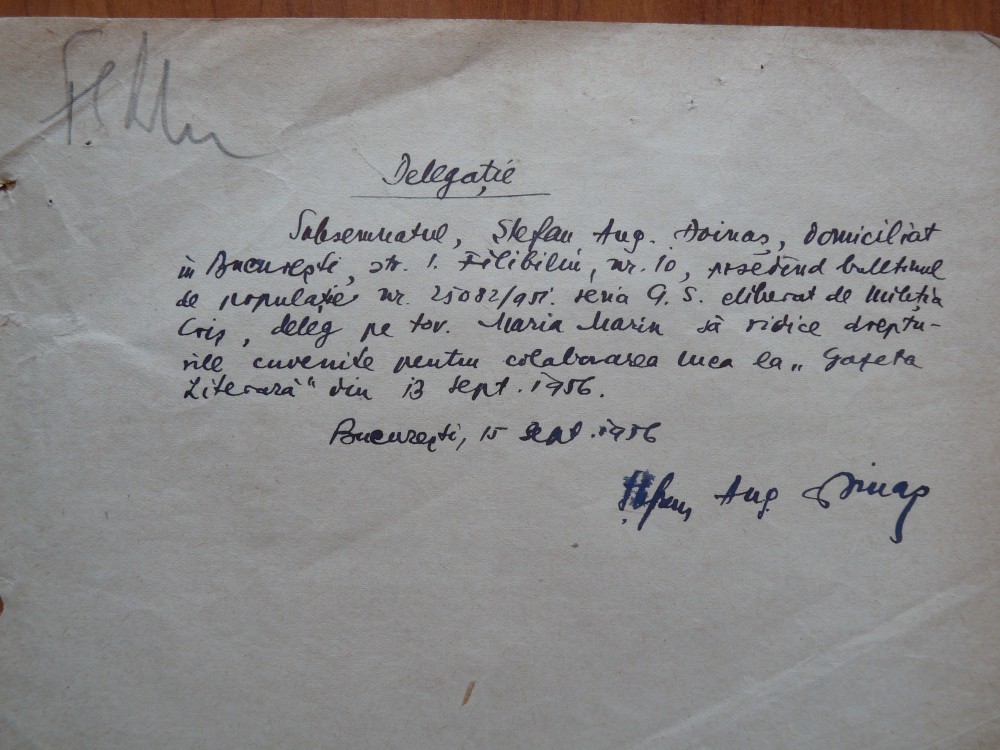 Delegație
Subsemnatul, Ștefan Aug. Doinaș, domiciliat
în București, str. I. Filibiliu, nr. 10, posedând buletinul
de populație nr. 25082/951. seria G. S. eliberat de Miliția
Criș, deleg pe tov. Maria Marin să ridice dreptu-
rile cuvenite pentru colaborarea mea la „Gazeta
Literară" din 13 sept. 1956.
București, 15 sept. 1956
Ștefan Aug. Doinaș